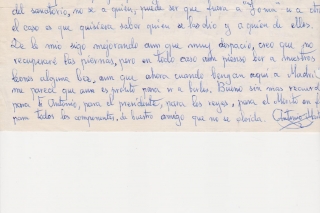 del sanatorio, no se a quien, puede ser que fuera a "Jose" u a otro
el caso es que quisiera saber quien se las dio y a quien de ellos.
De lo mio sigo mejorando aun que muy despacio, creo que no
recuperaré las piernas, pero en todo caso aun pienso ber a nuestros
leones alguna bez, aun que ahora cuando bengan aqui a Madrid
me parece que aun es pronto para ir a berlos. Bueno sin mas recuerdos
para ti Antonio, para el presidente, para los reyes, para el
para todos los componentes, de buestro amigo que no os olvida. Antonio